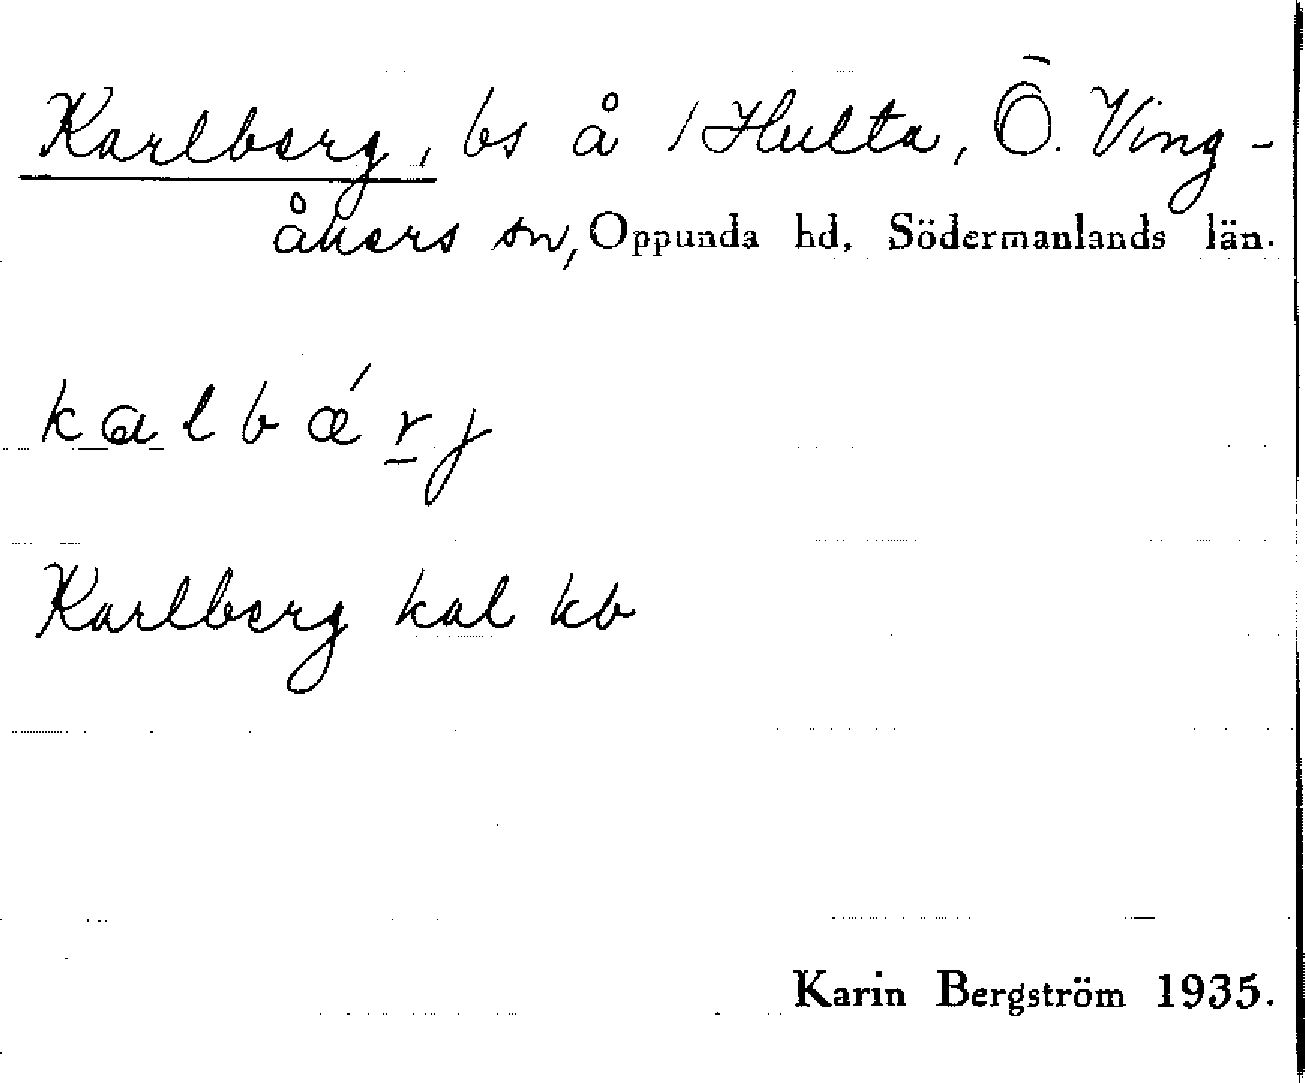 Karlberg, bs å 1 Hulta, Ö. Ving-
åkers sn, Oppunda hd, Södermanlands län.
kalbǽrj
Karlberg kal kb
Karin Bergström 1935.